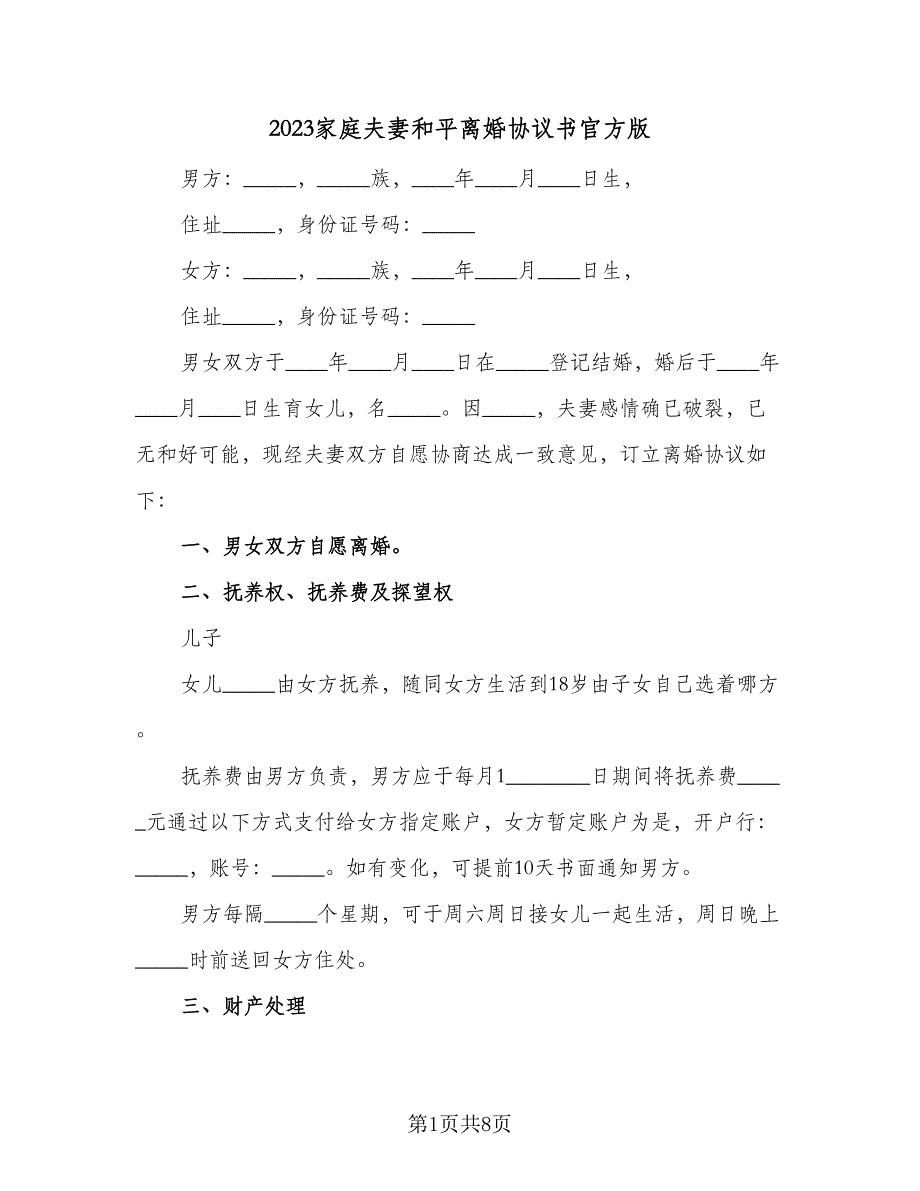 2023家庭夫妻和平离婚协议书官方版
男方：_____，_____族，____年____月____日生，
住址_____，身份证号码：_____
女方：_____，_____族，____年____月____日生，
住址_____，身份证号码：_____
男女双方于____年____月____日在_____登记结婚，婚后于____年
____月____日生育女儿，名_____。因_____，夫妻感情确已破裂，已
无和好可能，现经夫妻双方自愿协商达成一致意见，订立离婚协议如
下：
一、男女双方自愿离婚。
二、抚养权、抚养费及探望权
儿子
女儿_____由女方抚养，随同女方生活到18岁由子女自己选着哪方
。
抚养费由男方负责，男方应于每月1________日期间将抚养费____
_元通过以下方式支付给女方指定账户，女方暂定账户为是，开户行：
_____，账号：_____。如有变化，可提前10天书面通知男方。
男方每隔_____个星期，可于周六周日接女儿一起生活，周日晚上
_____时前送回女方住处。
三、财产处理
第1页共8页